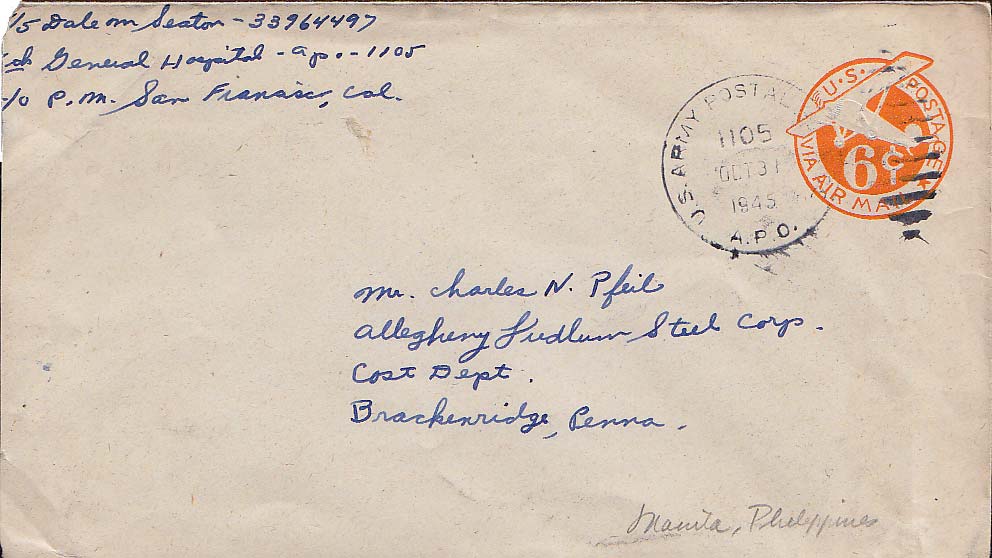 /5 Dale M Seaton - 33964497
General Hospital - apo. - 1105
c/o P.M. San Francisco, Cal.
U.S. ARMY POSTAL
1105
OCT 31
1945
A.P.O.
U.S. POSTAGE
6¢
VIA AIR MAIL
Mr. Charles N. Pfeil
Allegheny Ludlum Steel Corp.
Cost Dept.
Brackenridge, Penna.
Manila, Philippines